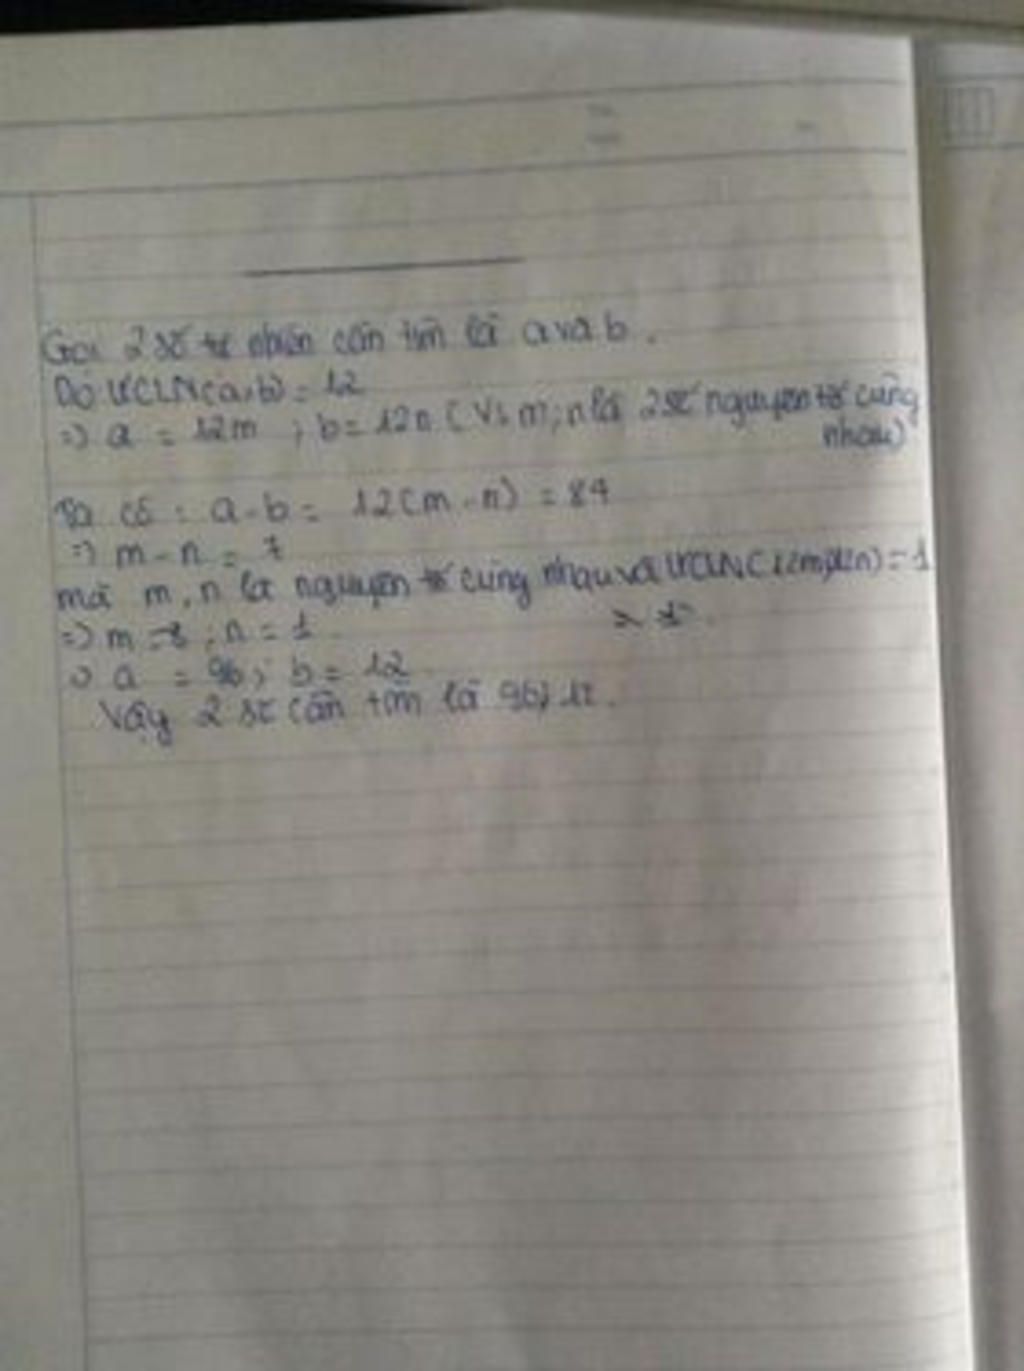 Gọi 2 số tự nhiên cần tìm là a và b.
Do ƯCLN(a,b) = 12
=> a = 12m ; b = 12n (Vs m;n là 2 số nguyên tố cùng
nhau)
Ta có : a-b = 12(m-n) = 84
=> m-n = 7
mà m, n là nguyên tố cùng nhau và ƯCLN(12m,12n) = 1
=> m = 8 ; n = 1
=> a = 96 ; b = 12
Vậy 2 số cần tìm là 96; 12.